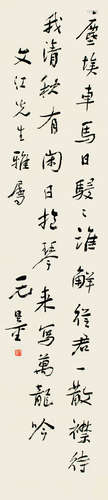 尘埃車馬日駸〻誰解從君一散襟待
我清秋有閑日抱琴來寫萬龍吟
文江先生雅屬
元